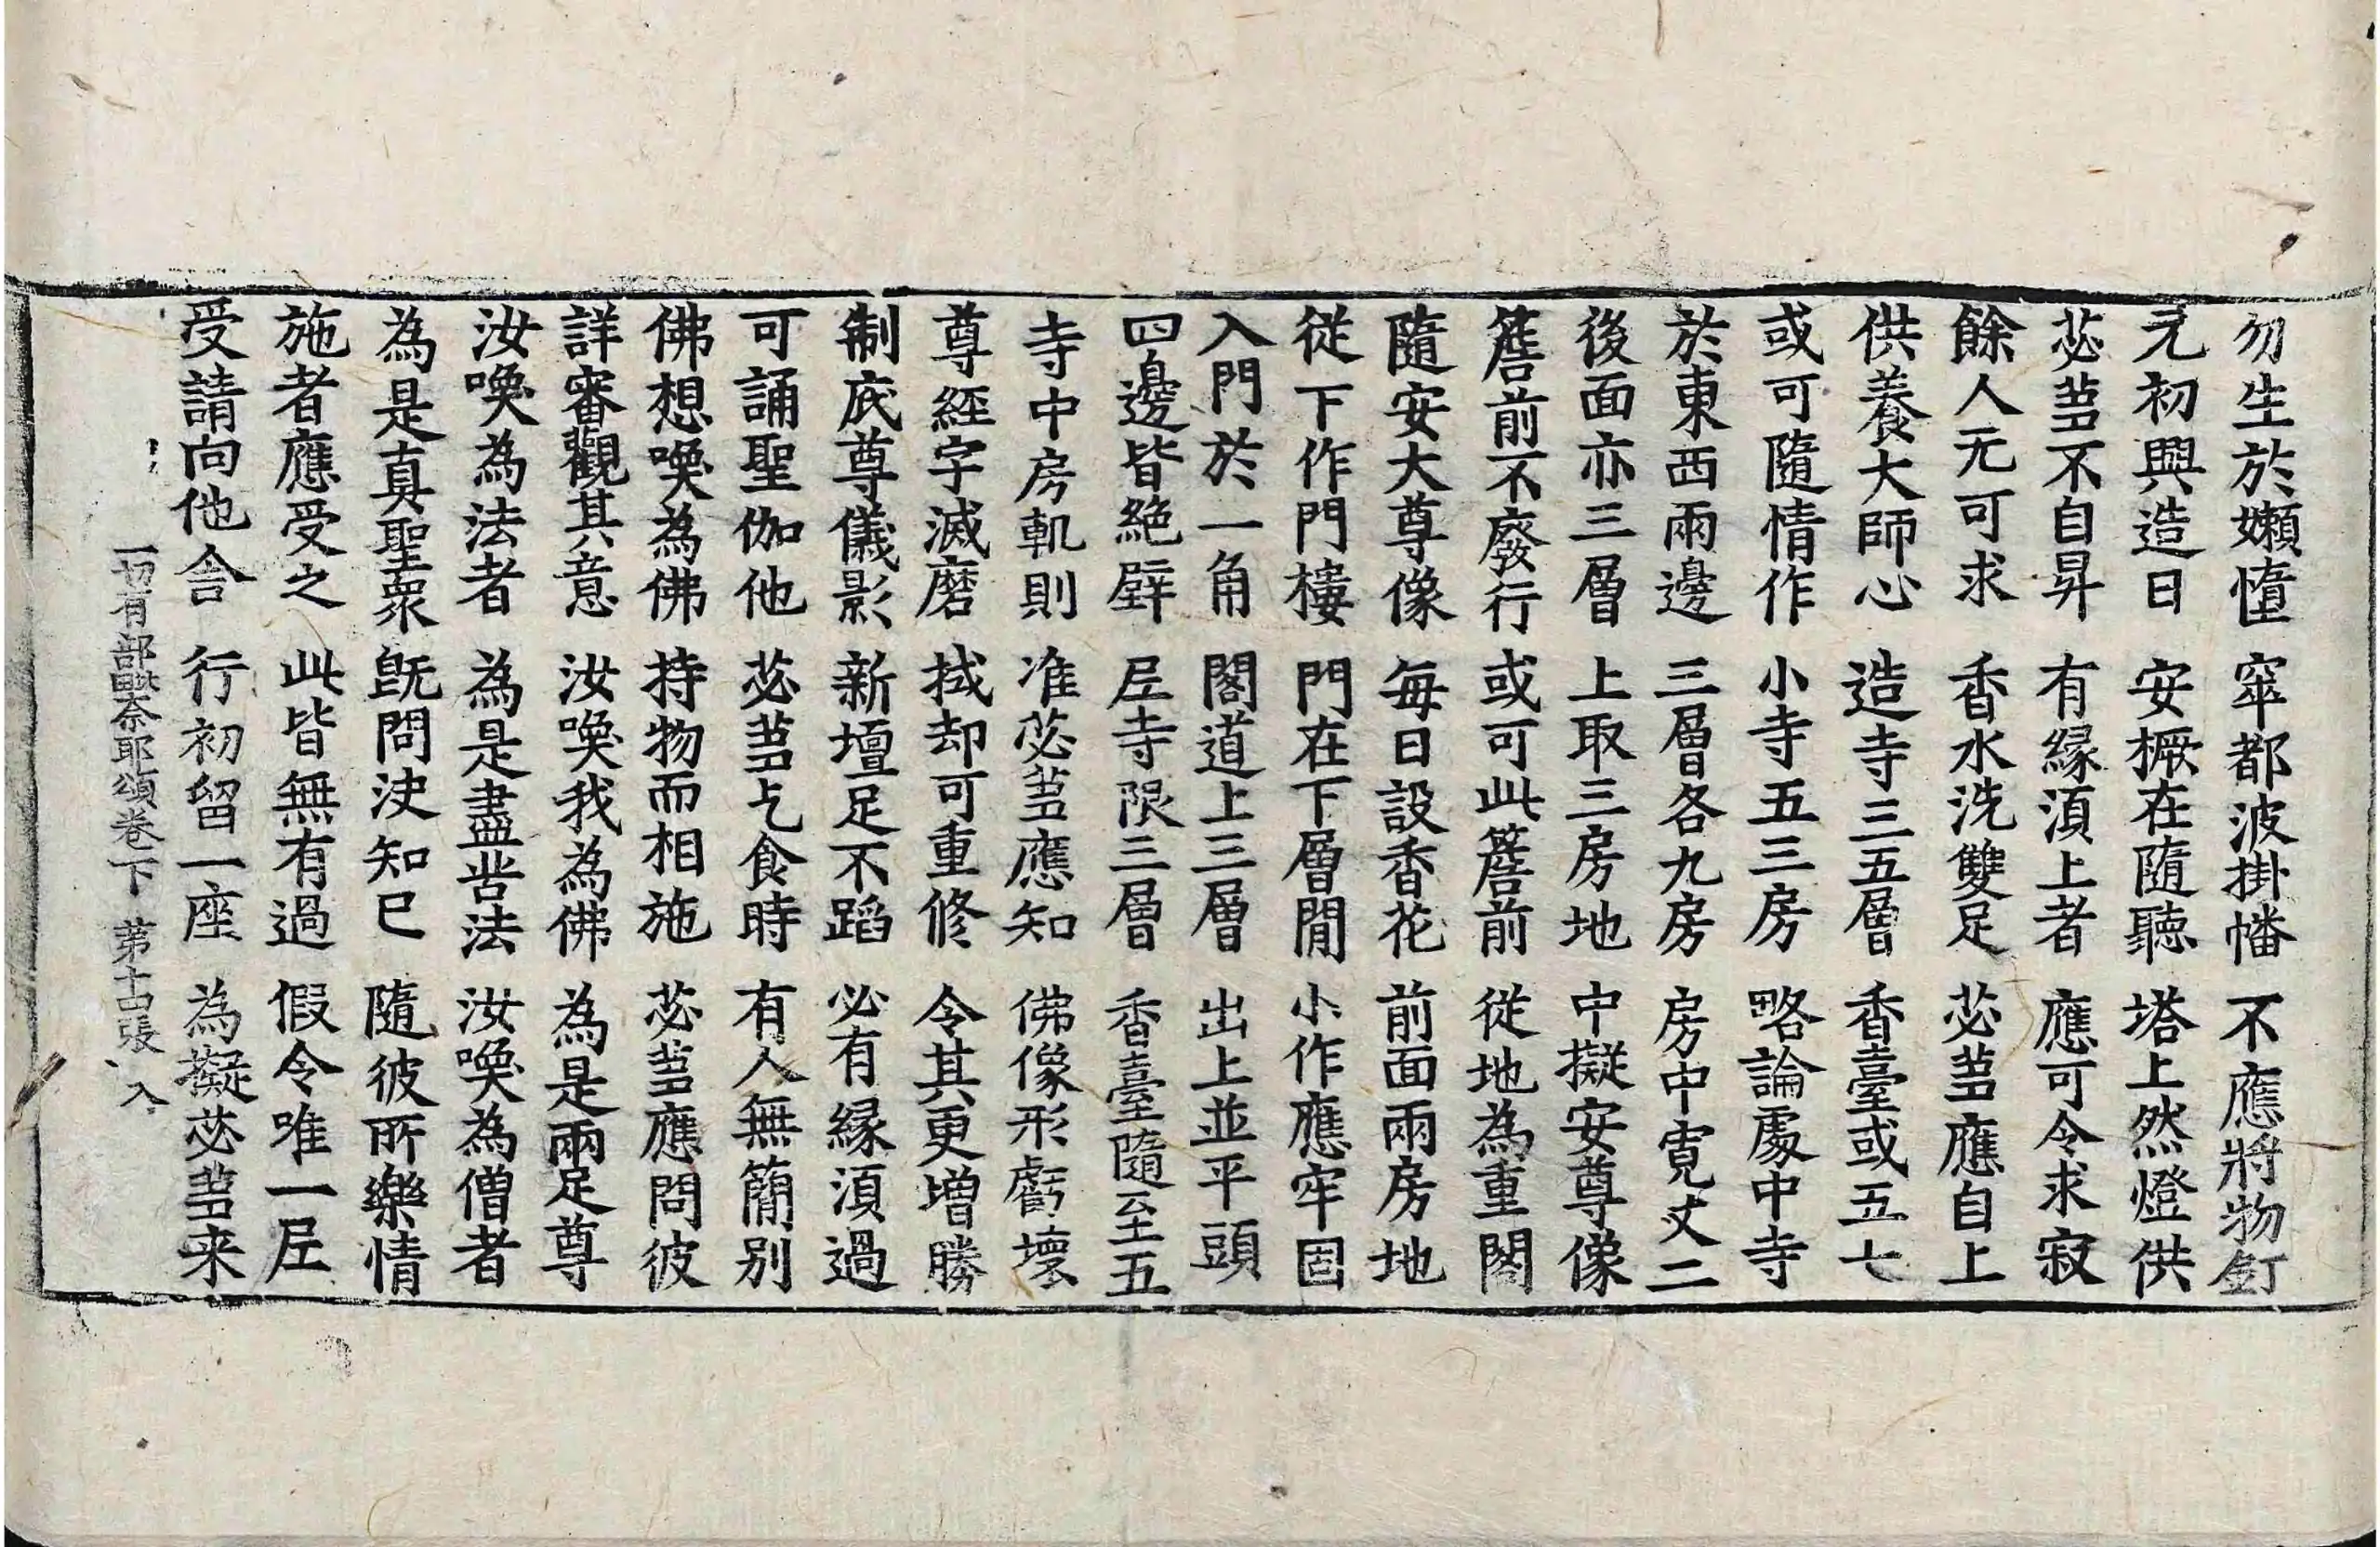 勿生於嬾惰 窣都波掛幡 不應將物釘
元初興造日 安橛在隨聽 塔上然燈供
苾蒭不自昇 有縁湏上者 應可令求寂
餘人无可求 香水洗雙足 苾蒭應自上
供養大師心 造寺三五層 香臺或五七
或可隨情作 小寺五三房 略論處中寺
於東西兩邊 三層各九房 房中寬丈二
後面亦三層 上取三房地 中擬安尊像
簷前不廢行 或可此簷前 從地為重閣
隨安大尊像 每日設香花 前面兩房地
從下作門樓 門在下層間 小作應牢固
入門於一角 閣道上三層 出上並平頭
四邊皆絶壁 尼寺限三層 香臺隨至五
寺中房軌則 准苾蒭應知 佛像形虧壞
尊經字滅磨 拭却可重修 令其更增勝
制底尊儀影 新壇足不蹈 必有縁湏過
可誦聖伽他 苾蒭乞食時 有人無簡別
佛想喚為佛 持物而相施 苾蒭應問彼
詳審觀其意 汝喚我為佛 為是兩足尊
汝喚為法者 為是盡苦法 汝喚為僧者
為是真聖衆 旣問決知已 隨彼所樂情
施者應受之 此皆無有過 假令唯一尼
受請向他舍 行初留一座 為擬苾蒭来
一切有部毗奈耶頌卷下 苐十四張 入